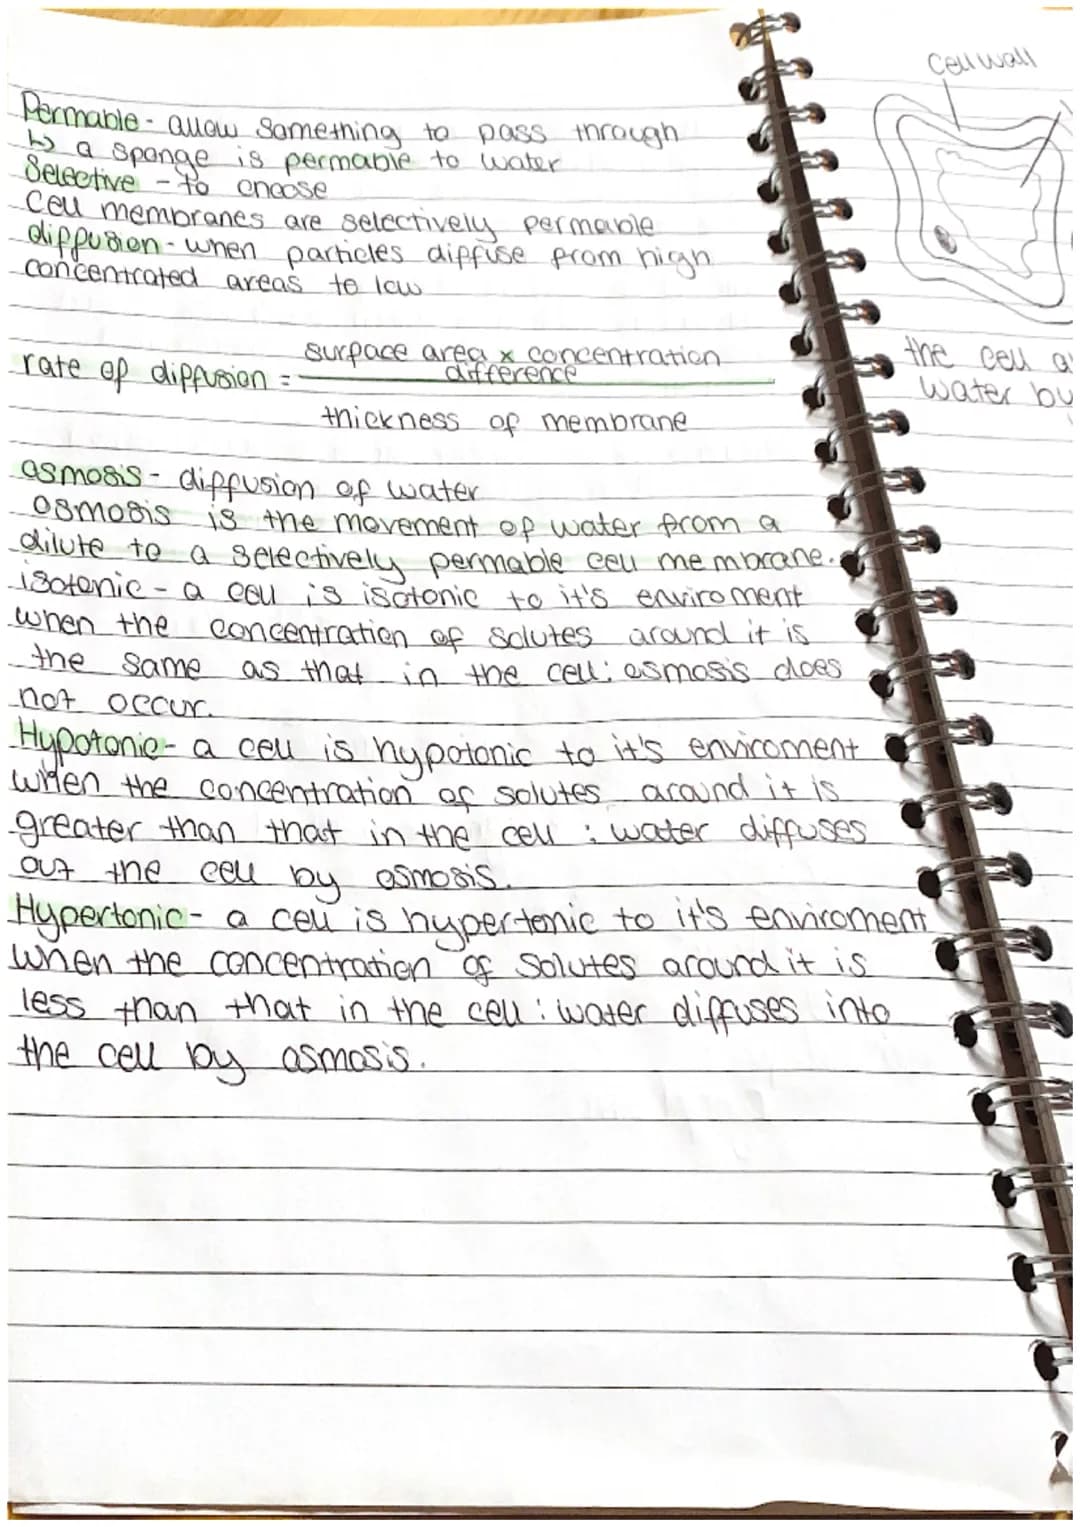 Permable - allow something to pass through
↳ a sponge is permable to water
Selective - to choose
Cell membranes are selectively permable
diffusion - when particles diffuse from high
concentrated areas to low
rate of diffusion = surface area x concentration
difference
thickness of membrane
osmosis - diffusion of water
osmosis is the movement of water from a
dilute to a selectively permable cell membrane.
isotonic - a cell is isotonic to it's enviroment
when the concentration of solutes around it is
the same as that in the cell: osmosis does
not occur.
Hypotonic - a cell is hypotonic to it's enviroment
when the concentration of solutes around it is
greater than that in the cell : water diffuses
out the cell by osmosis.
Hypertonic - a cell is hypertonic to it's enviroment
when the concentration of solutes around it is
less than that in the cell : water diffuses into
the cell by osmosis.
cell wall
the cell
water